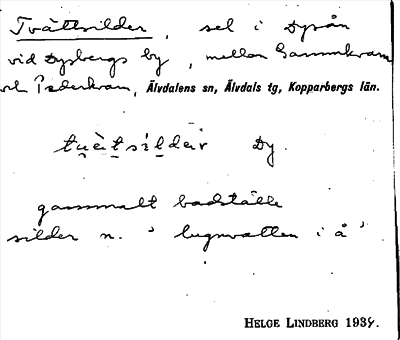 Tvättsilder, sel i Dysån
vid Dysbergs by, mellan Gammkvarn
och Päderkvarn, Älvdalens sn, Älvdals tg, Kopparbergs län.
tu̯ètsìldär Dy.
gammalt badställe
silder n. 'lugnvatten i å'
HELGE LINDBERG 1934.